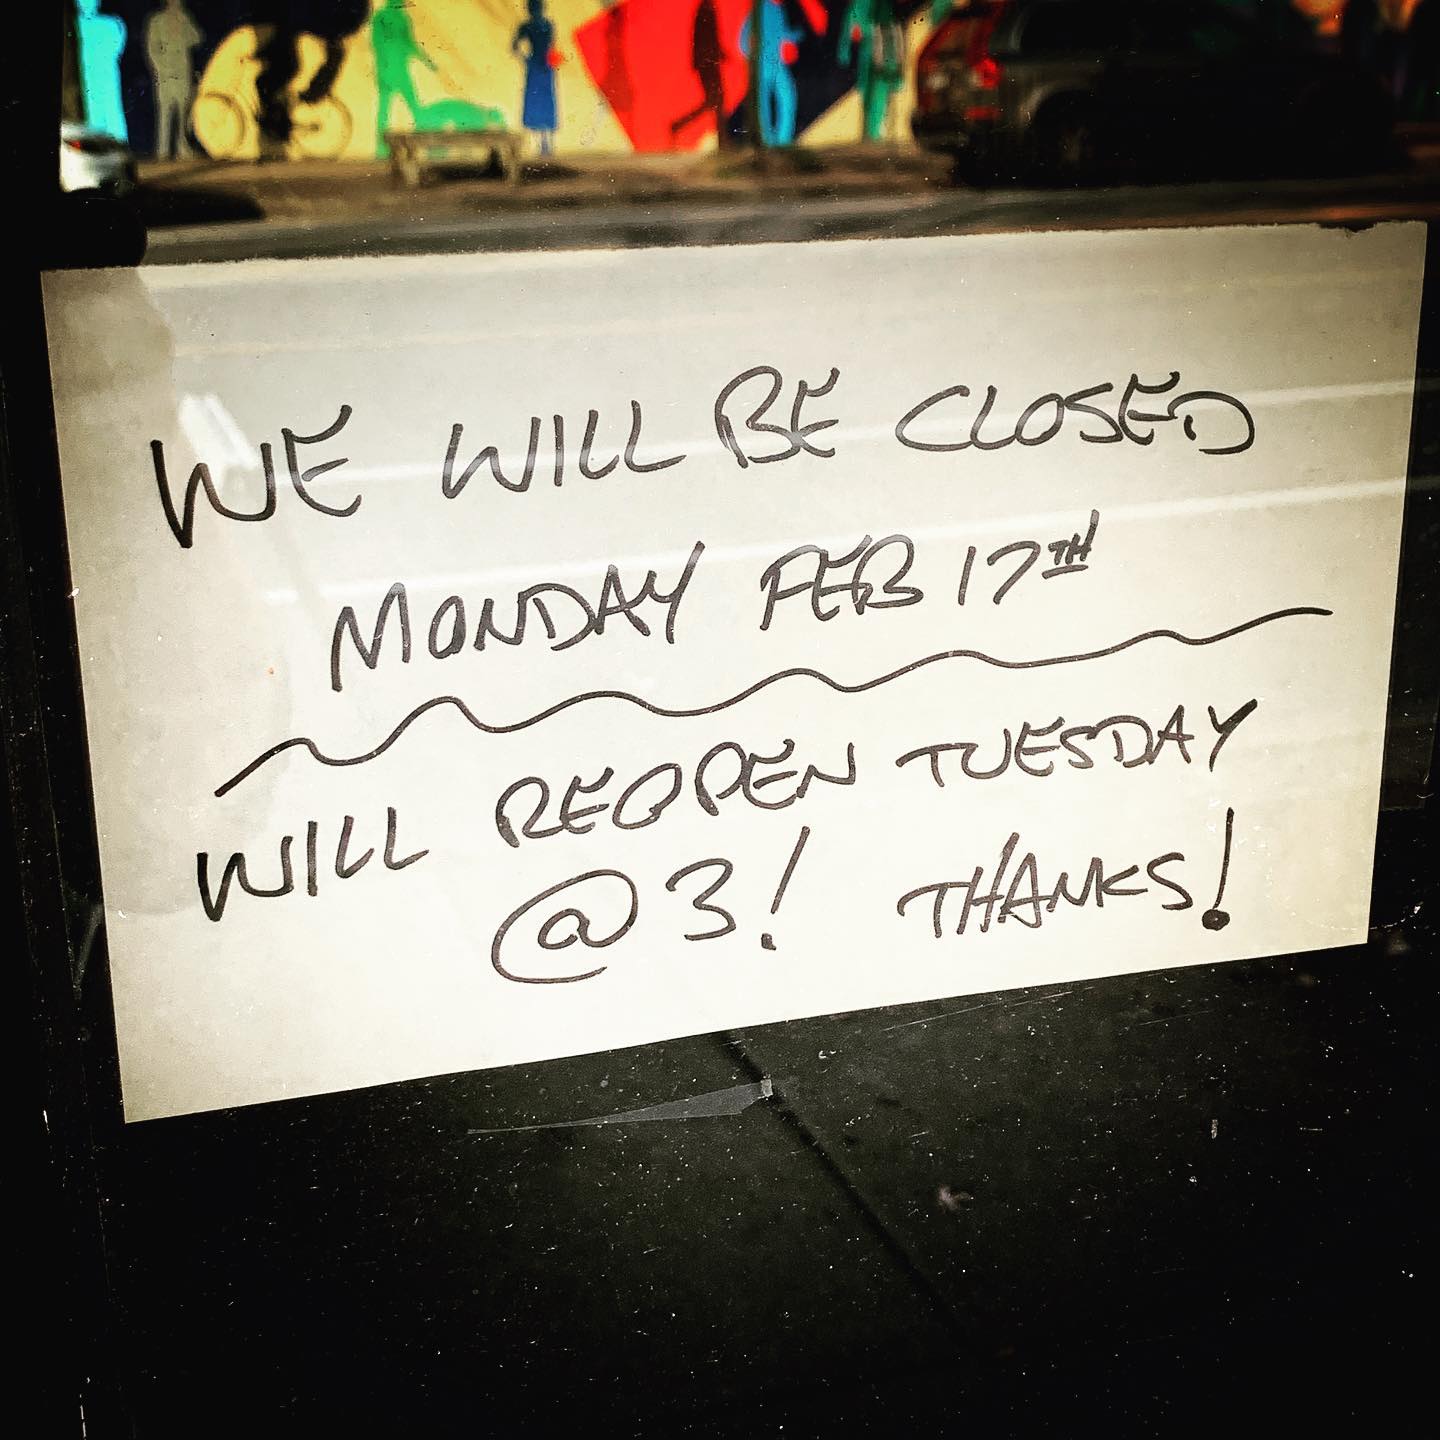 WE WILL BE CLOSED
MONDAY FEB 17TH
WILL REOPEN TUESDAY
@3! THANKS!